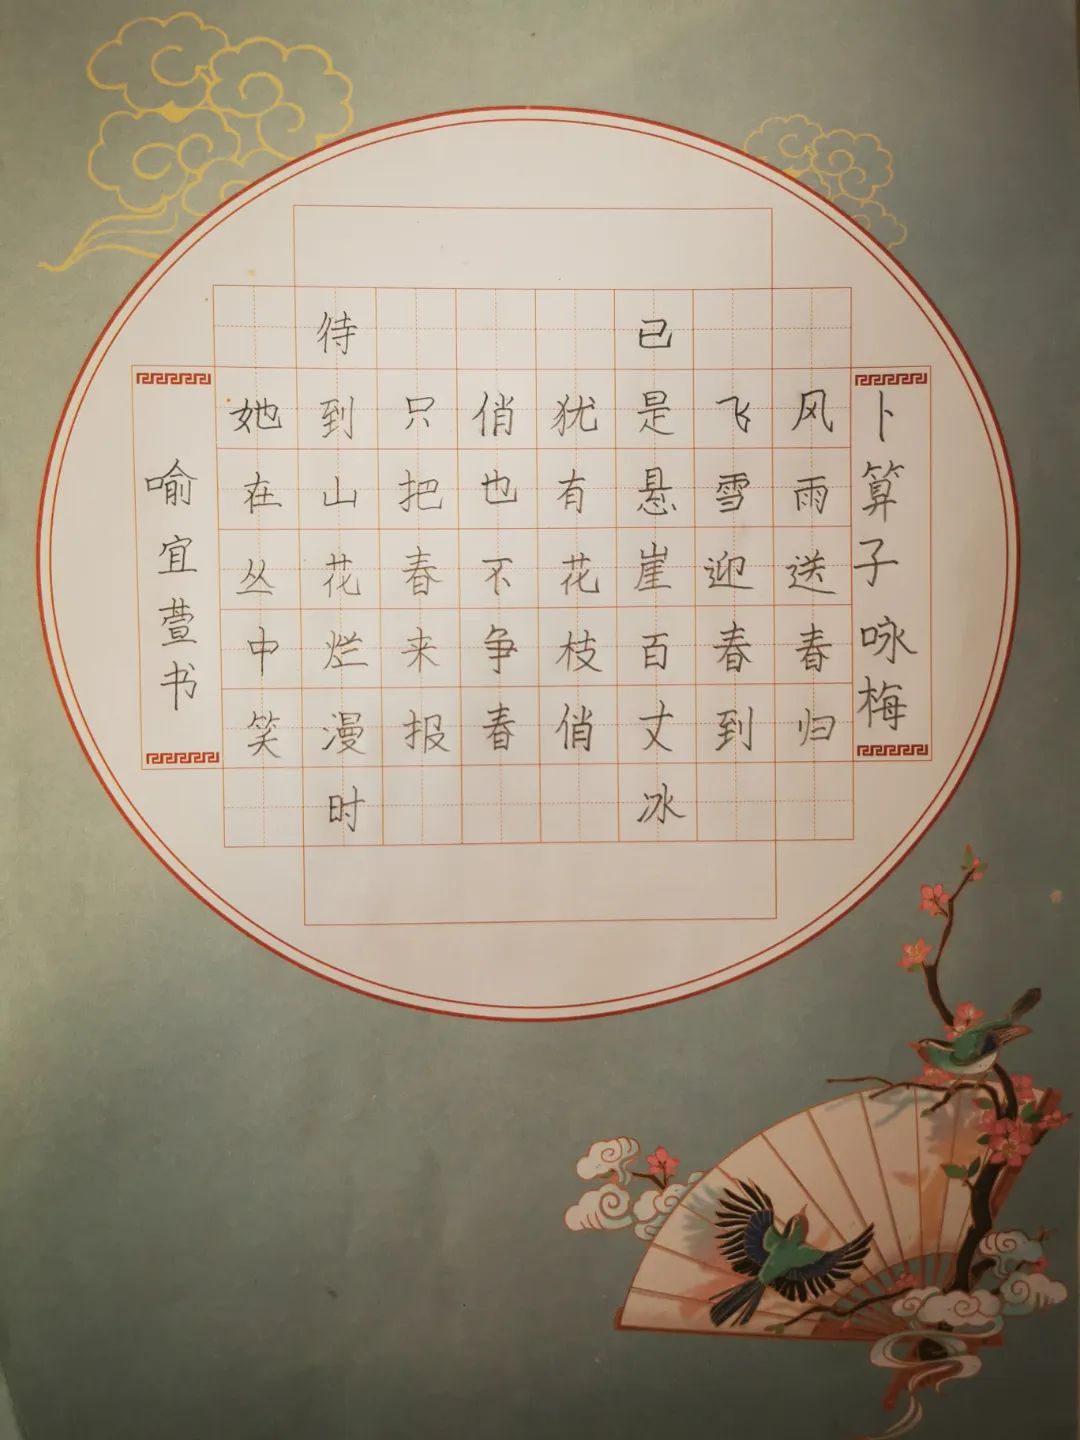 卜算子咏梅
风雨送春归
飞雪迎春到
已是悬崖百丈冰
犹有花枝俏
俏也不争春
只把春来报
待到山花烂漫时
她在丛中笑
喻宜萱书